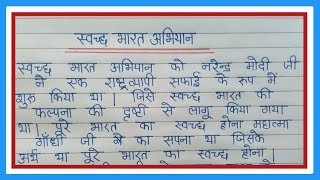 स्वच्छ भारत अभियान
स्वच्छ भारत अभियान को नरेन्द्र मोदी जी
ने एक राष्ट्रव्यापी सफाई के रूप में
शुरु किया था। जिसे स्वच्छ भारत की
कल्पना की दृष्टी से लागू किया गया
था। पूरे भारत का स्वच्छ होना महात्मा
गाँधी जी का सपना था जिसके
अर्थ था पूरे भारत का स्वच्छ होना।